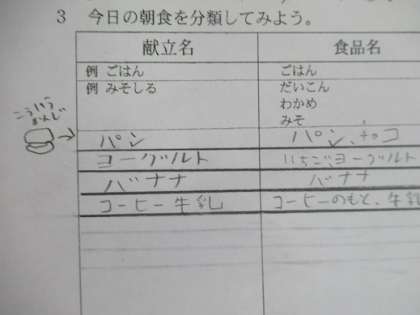 3 今日の朝食を分類してみよう。
献立名 食品名
例 ごはん ごはん
例 みそしる だいこん
わかめ
みそ
こういう
かんじ
パン パン、チョコ
ヨーグルト いちごヨーグルト
バナナ バナナ
コーヒー牛乳 コーヒーのもと、牛乳